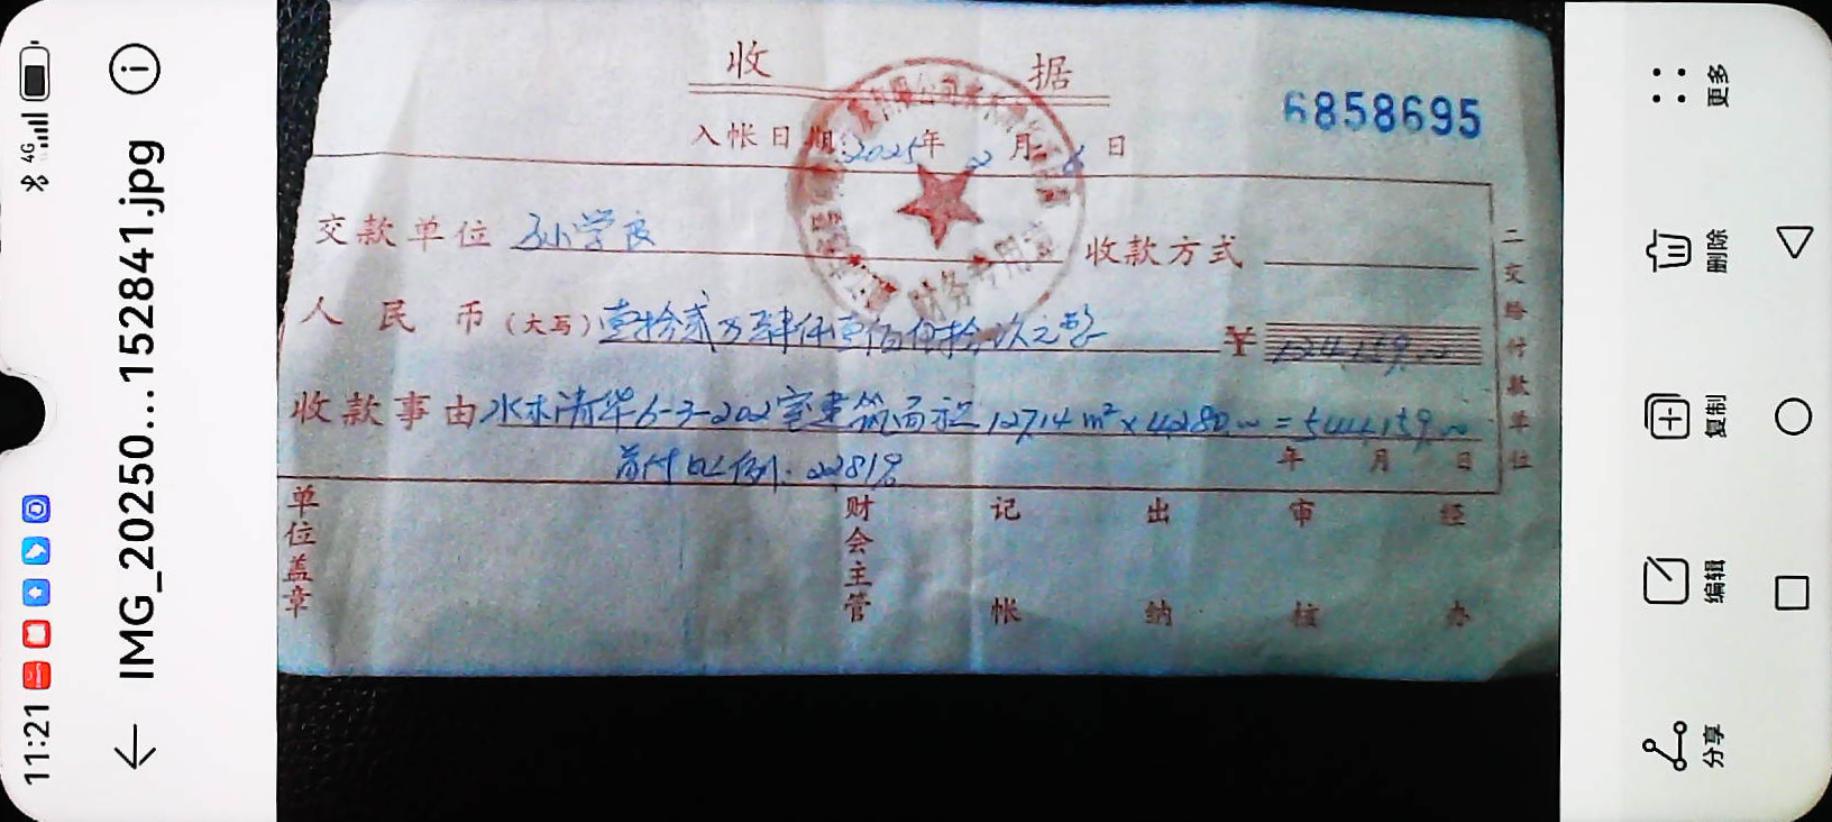 11:21
4G
← IMG_20250...152841.jpg
收据
6858695
入帐日期：2025年2月8日
财务专用章
交款单位 孙学良 收款方式
人民币（大写）壹拾贰万肆仟壹佰伍拾玖元整 ¥ 124159.00
收款事由 水木清华6-3-202室建筑面积127.14m²×4280.00=544159.00
首付比例：22.81%
年 月 日
二交给付款单位
单位盖章 财会主管 记帐 出纳 审核 经办
分享
编辑
复制
删除
更多